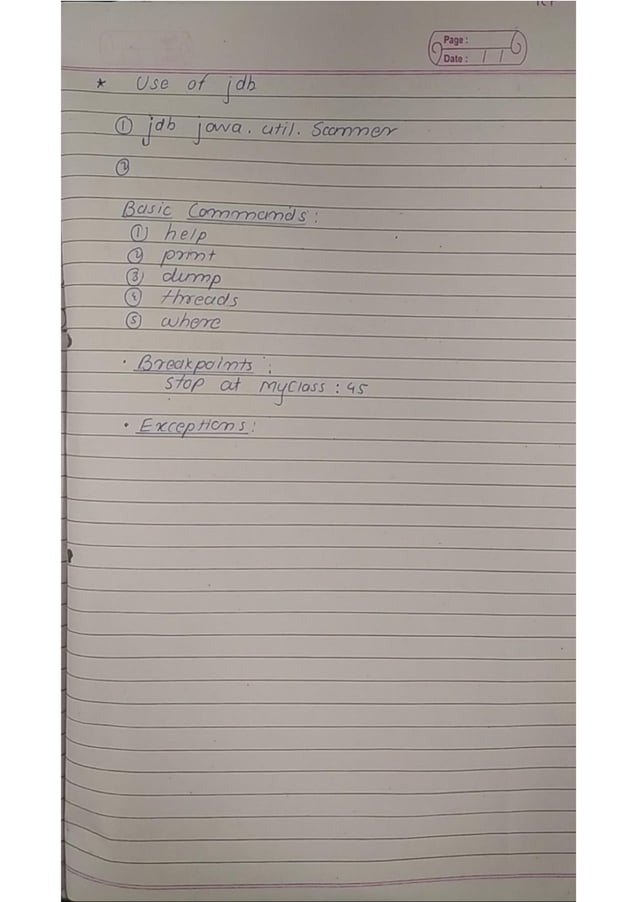 Page :
Date : / /
* Use of jdb
① jdb java.util.Scanner
②
Basic Commands :
① help
② print
③ dump
④ threads
⑤ where
• Breakpoints :
stop at MyClass : 45
• Exceptions :